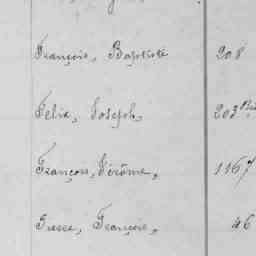 François, Baptiste 208
Felix, Joseph, 203 Bis
François, Jérôme, 1167
François, 46